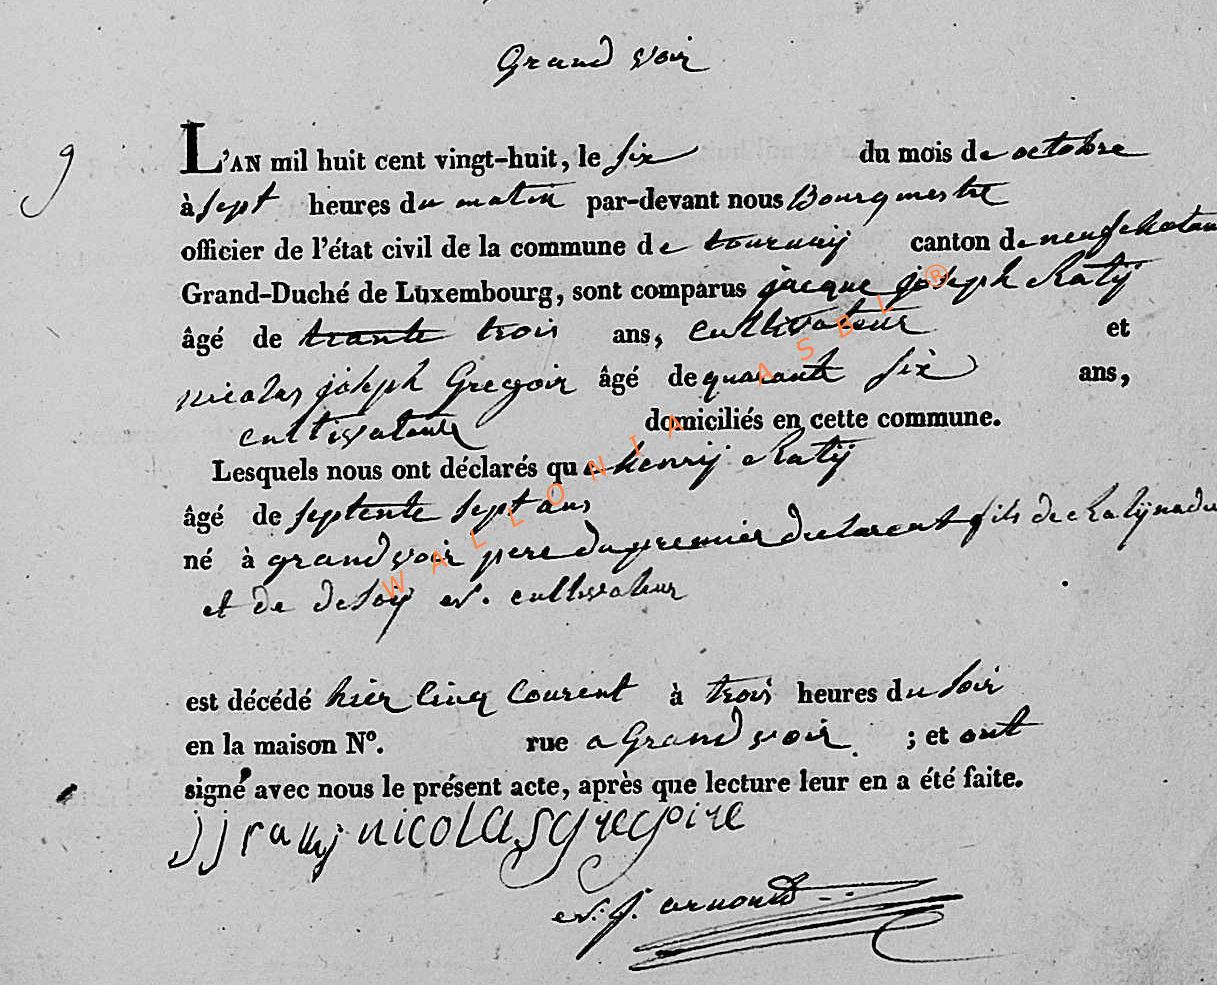 Grand voir
9
L'AN mil huit cent vingt-huit, le six du mois de octobre
à sept heures du matin par-devant nous Bourgmestre
officier de l'état civil de la commune de tournay canton de neufchatau
Grand-Duché de Luxembourg, sont comparus jacque joseph Raty
âgé de trante trois ans, cultivateur et
nicolas joseph Gregoir âgé de quarante six ans,
cultivateur domiciliés en cette commune.
Lesquels nous ont déclarés que henry Raty
âgé de septente sept ans
né à grandvoir pere du premier declarent fils de Raty
et de cultivateur
est décédé hier cinq courent à trois heures du soir
en la maison Nº. rue a Grandvoir ; et ont
signé avec nous le présent acte, après que lecture leur en a été faite.
jj raty nicolas gregoire
arnould
WALLONIA ASBL ®